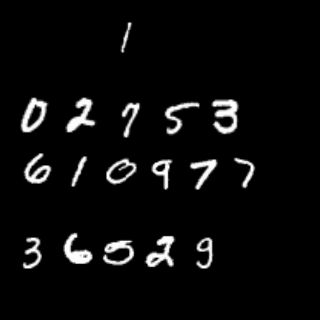 1
0 2 7 5 3
6 1 0 9 7 7
3 6 5 2 9